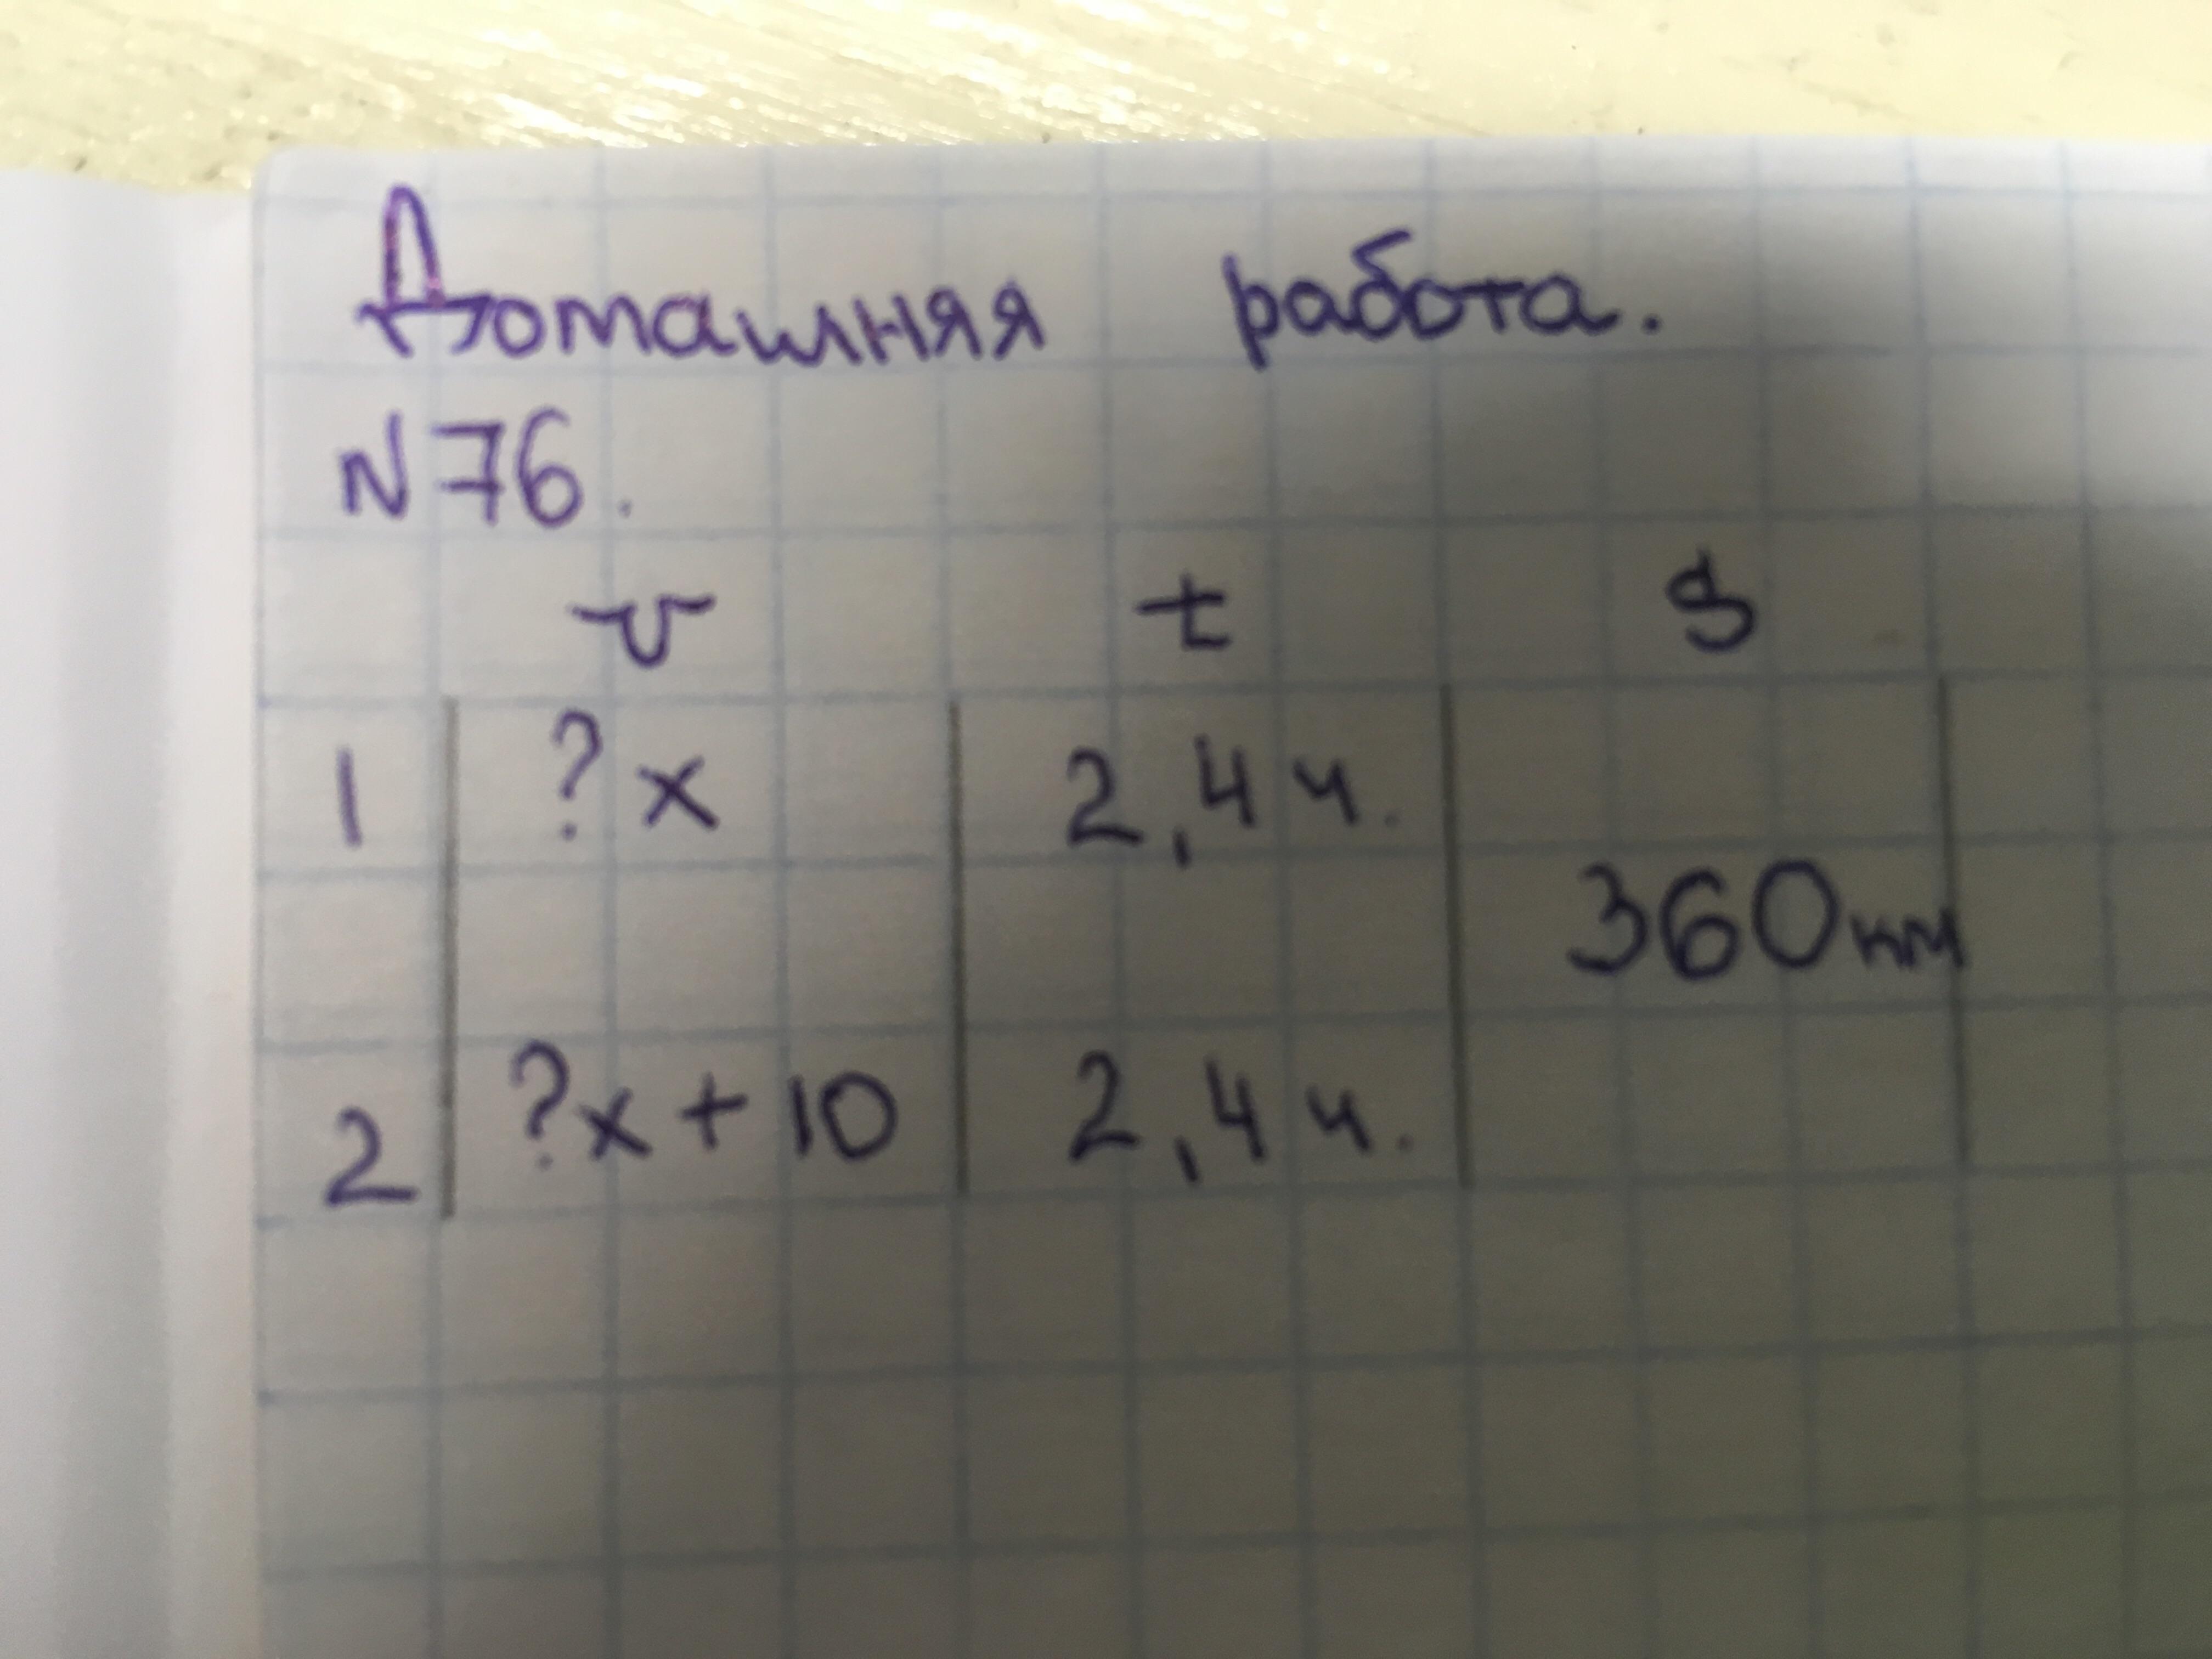 Домашняя работа.
N76.
v t S
1 ?x 2,4 ч.
360км
2 ?x+10 2,4 ч.